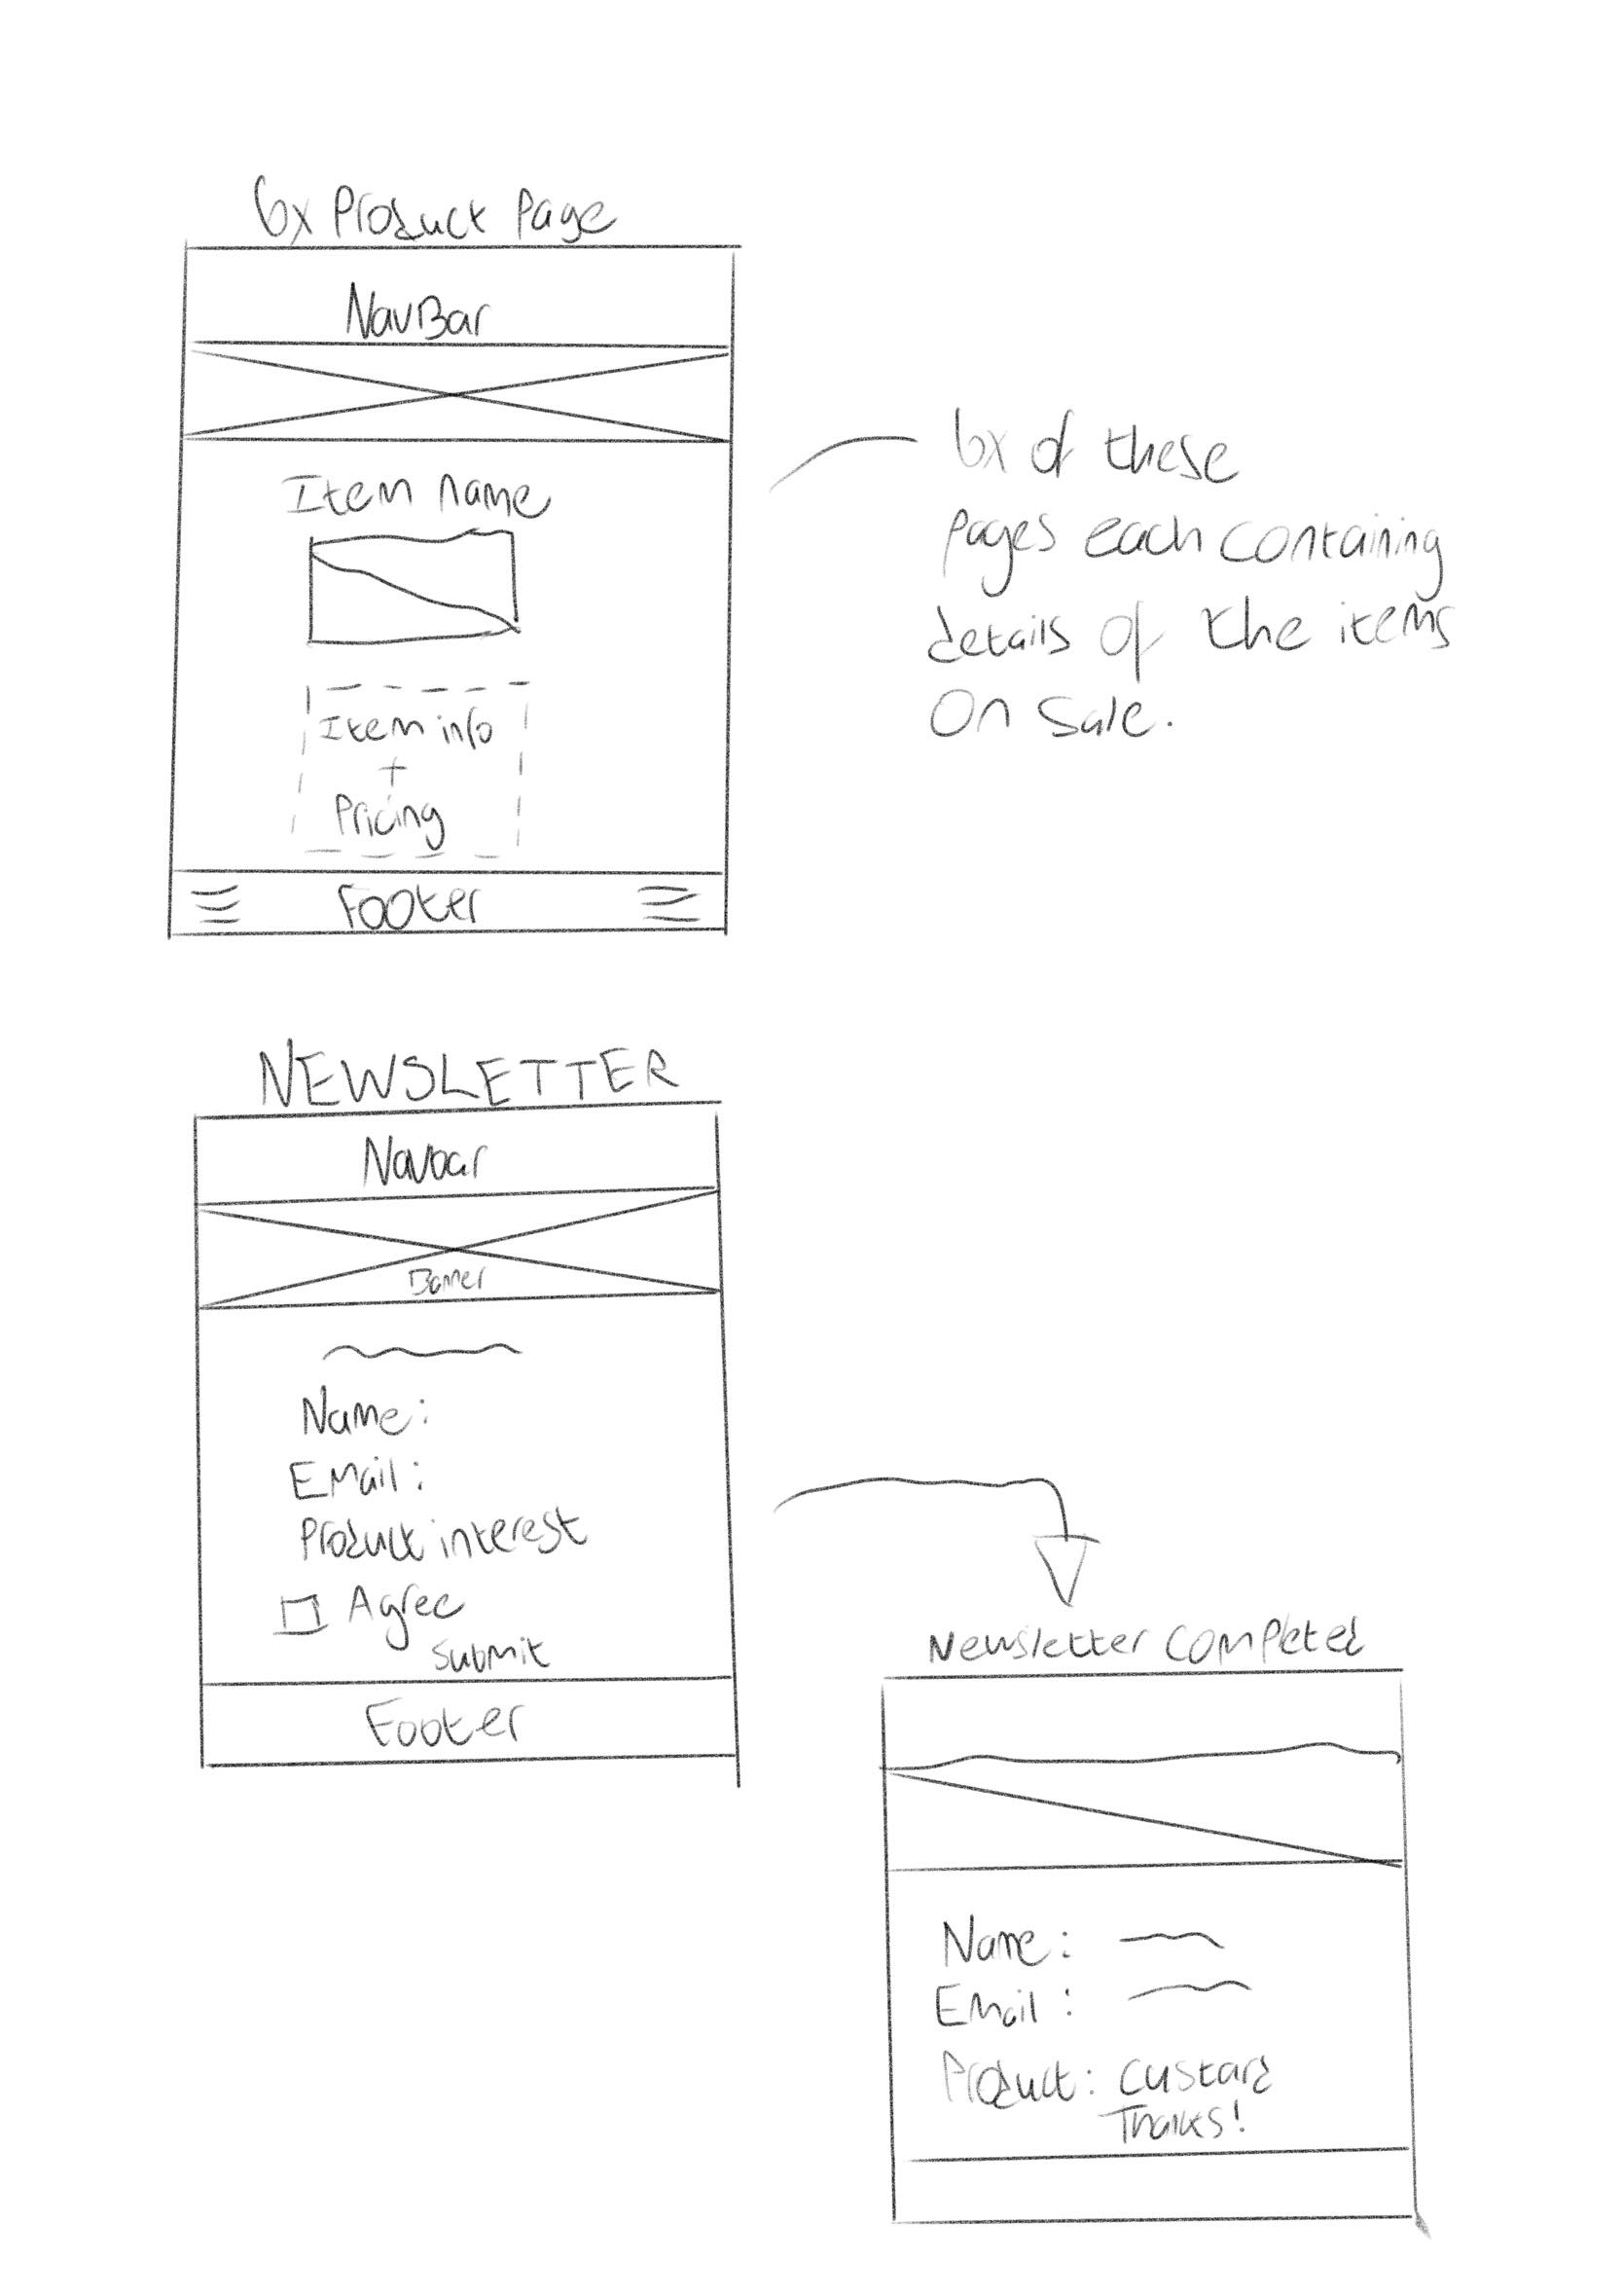 6x Product Page
NavBar
Item name
Item info
+
Pricing
Footer
6x of these
pages each containing
details of the items
on sale.
NEWSLETTER
Navbar
Banner
Name:
Email:
Product interest
Agree
Submit
Footer
Newsletter Completed
Name:
Email:
Product: Custard
Thanks!